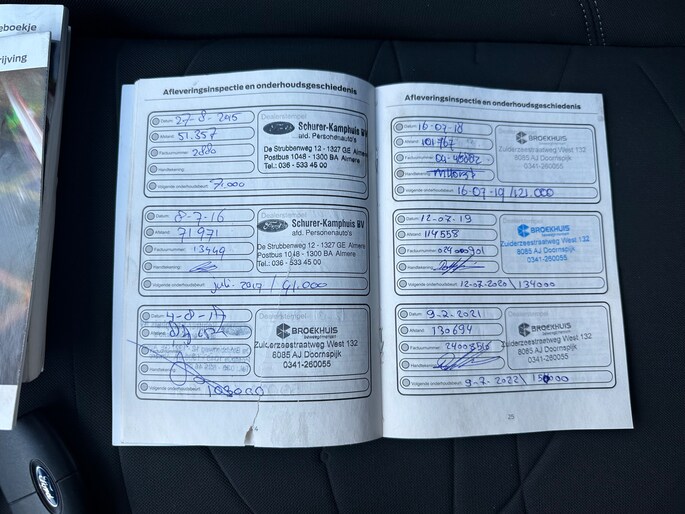 eboekje
ijving
Afleveringsinspectie en onderhoudsgeschiedenis
Datum: 27-8-2015
Afstand: 51.357
Factuurnummer: 2880
Handtekening:
Volgende onderhoudsbeurt: 71.000
Dealerstempel
Ford
Schurer-Kamphuis BV
afd. Personenauto's
De Strubbenweg 12 - 1327 GE Almere
Postbus 1048 - 1300 BA Almere
Tel.: 036 - 533 45 00
Datum: 8-7-16
Afstand: 71971
Factuurnummer: 13449
Handtekening:
Volgende onderhoudsbeurt: juli 2017 / 91.000
Dealerstempel
Ford
Schurer-Kamphuis BV
afd. Personenauto's
De Strubbenweg 12 - 1327 GE Almere
Postbus 1048 - 1300 BA Almere
Tel.: 036 - 533 45 00
Datum: 4-8-17
Afstand:
Factuurnummer:
Handtekening:
Volgende onderhoudsbeurt:
Dealerstempel
BROEKHUIS
Zuiderzeestraatweg West 132
8085 AJ Doornspijk
0341-260055
Afleveringsinspectie en onderhoudsgeschiedenis
Datum: 16-07-18
Afstand: 101767
Factuurnummer:
Handtekening:
Volgende onderhoudsbeurt: 16-07-19/121.000
BROEKHUIS
Zuiderzeestraatweg West 132
8085 AJ Doornspijk
0341-260055
Datum: 12-07-19
Afstand: 114558
Factuurnummer:
Handtekening:
Volgende onderhoudsbeurt: 12-07-2020 \ 134000
BROEKHUIS
Zuiderzeestraatweg West 132
8085 AJ Doornspijk
0341-260055
Datum: 9-2-2021
Afstand: 130694
Factuurnummer:
Handtekening:
Volgende onderhoudsbeurt: 9-2-2022 \
Dealerstempel
BROEKHUIS
Zuiderzeestraatweg West 132
8085 AJ Doornspijk
0341-260055
Ford